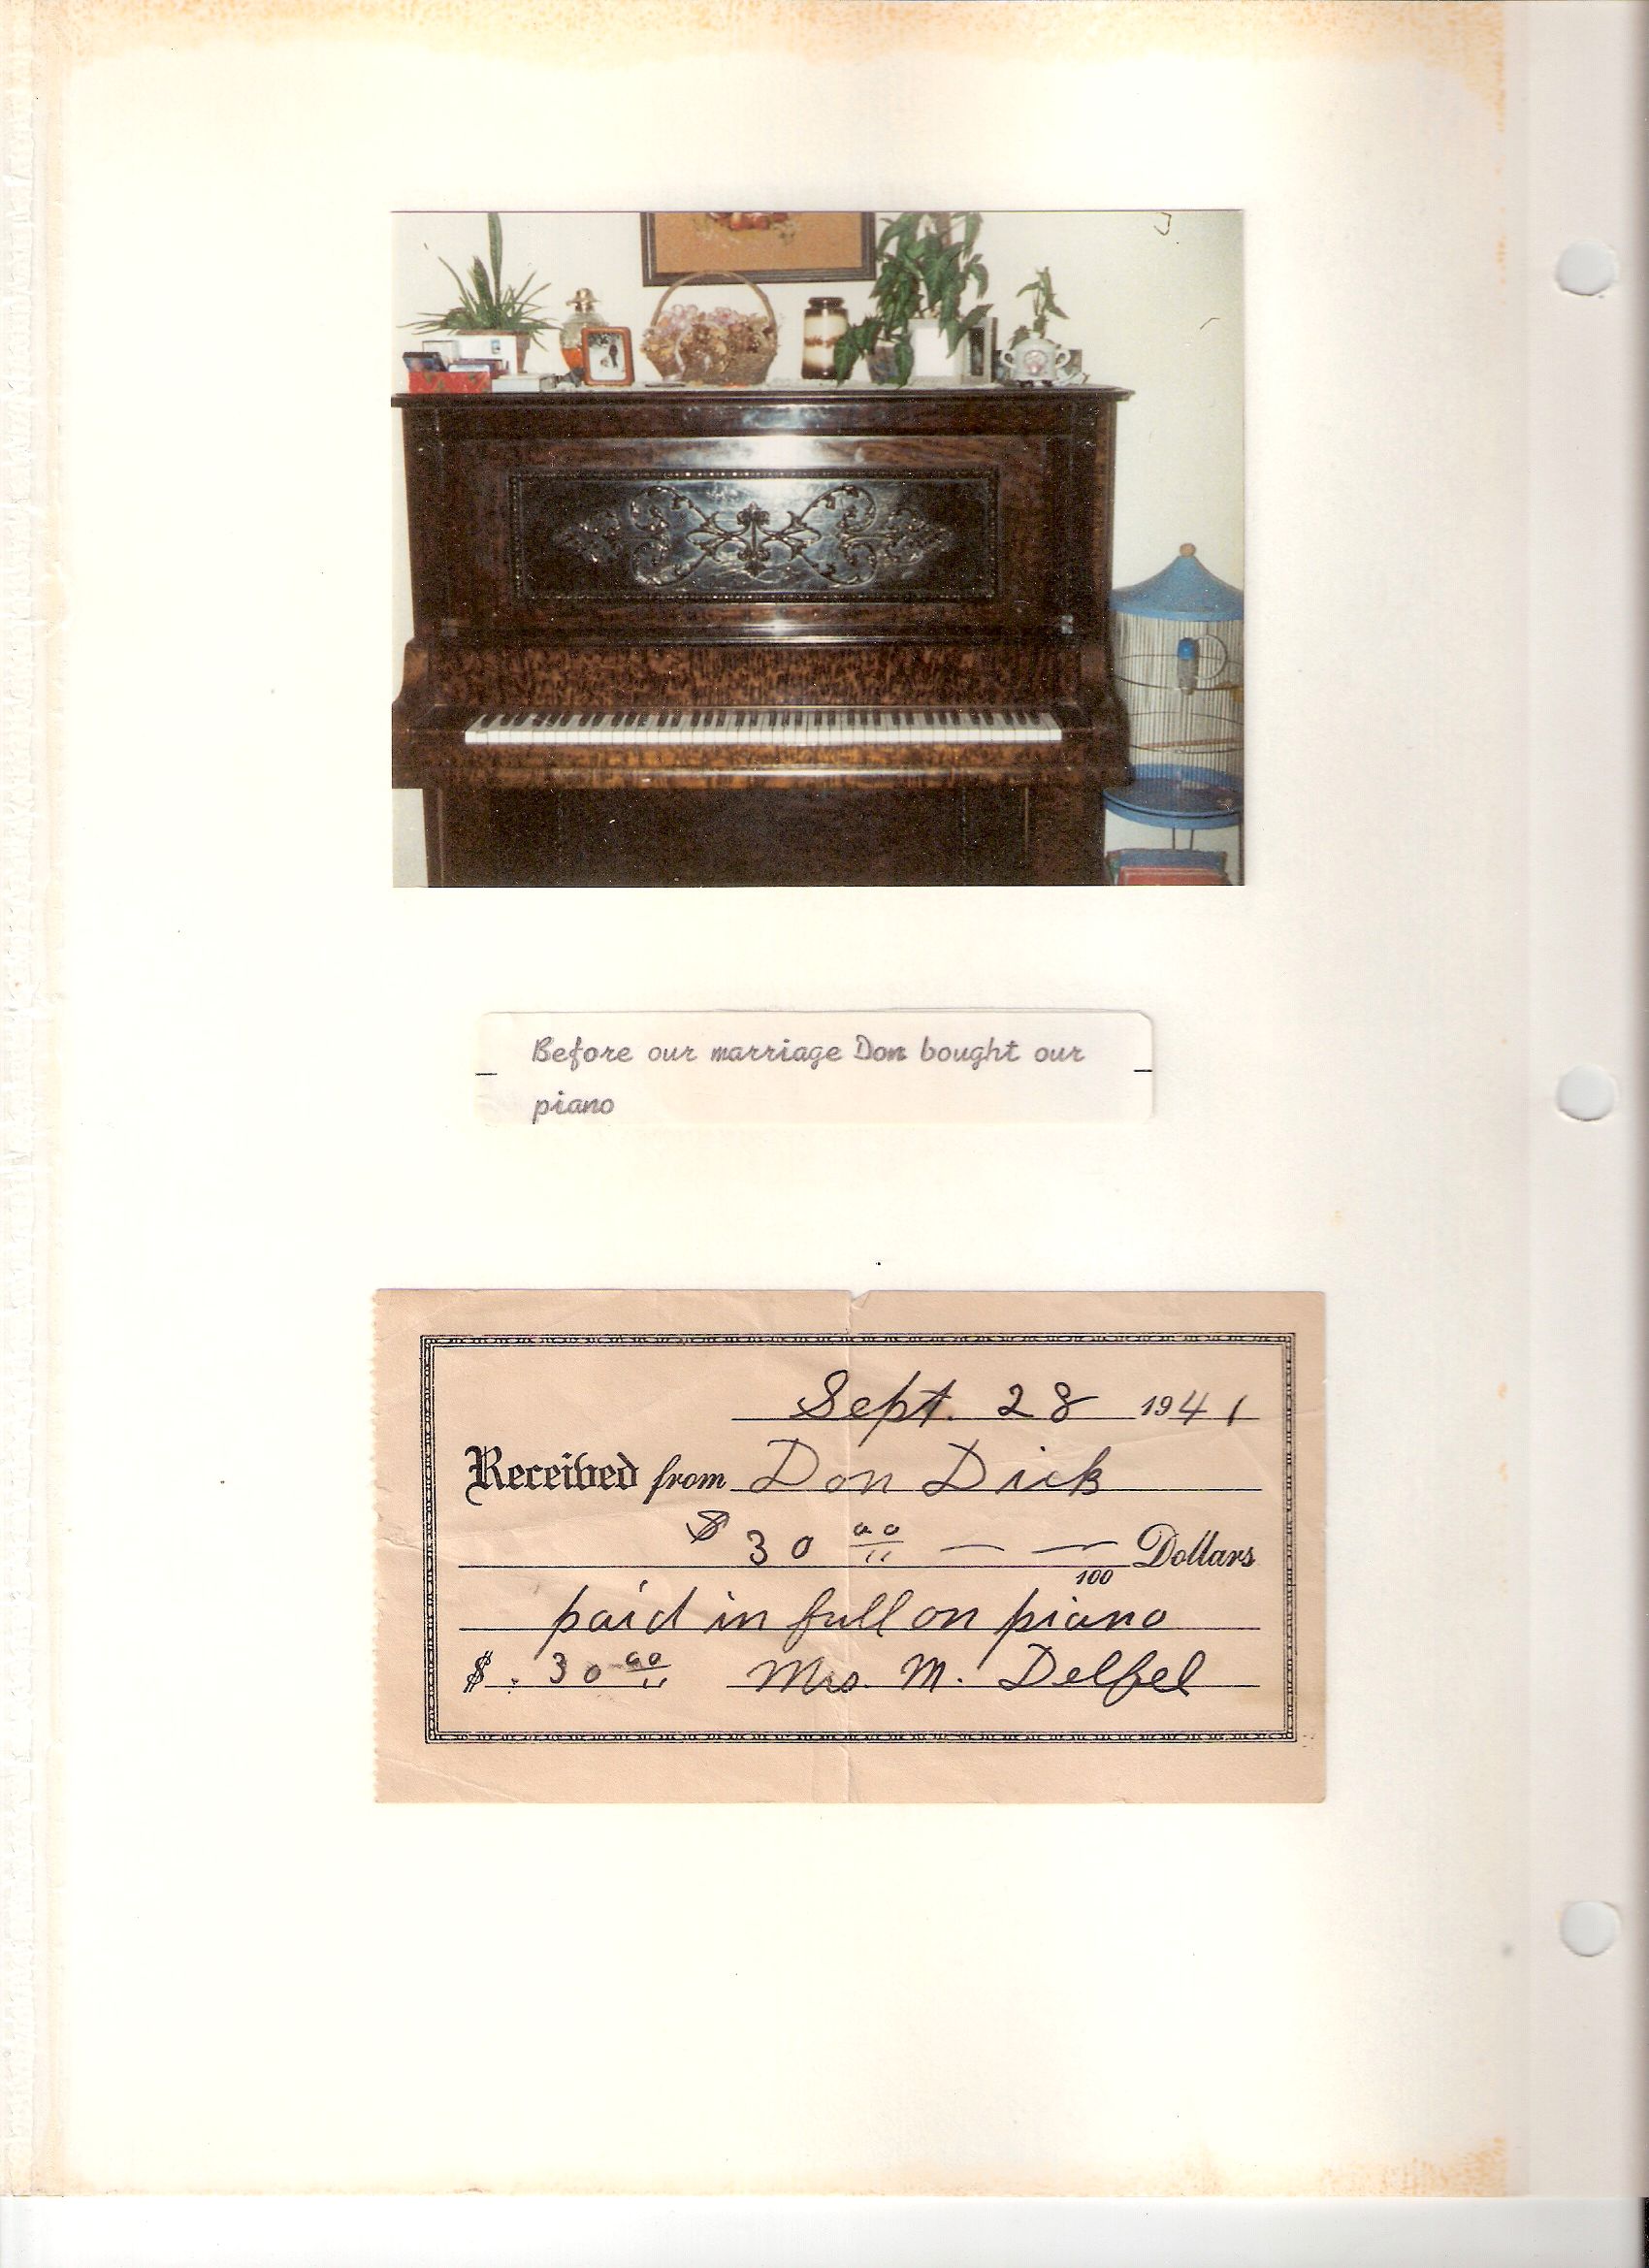 Before our marriage Don bought our
piano
Sept. 28 1941
Received from Don Dick
$30 00 — — Dollars
100
paid in full on piano
$. 30 00 Mrs. M. Delfel